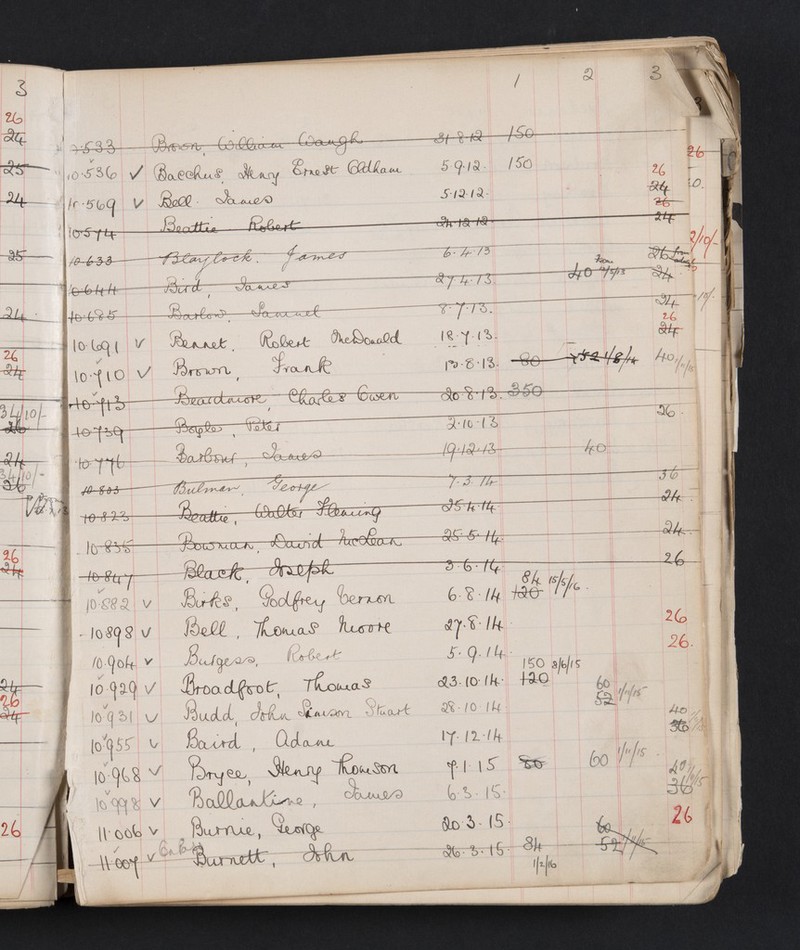 3
26
24
25
24
25
24
26
24
34/10/-
26
24
34/10/-
36
26
24
24
26
24
26
1 2 3
9.533 Brown, William Waugh 31.8.12 150
10.536 ✓ Bacchus, Henry Ernest Oldham 5.9.12. 150 26
10.569 v Bell. James 5.12.12. 26 24
10.574 Beattie Robert 24.12.12 26 24
10.633 Blaylock. James 6.4.13 26
10.644 Bird, James 27.4.13. 40 from 24
10.685 Barlow, Samuel 8.7.13. 24
10.691 v Bennet, Robert McDonald 18.7.13. 26 24
10.710 v Brown, Frank 13.8.13. 80 1/8/14 40
10.713 Beardmore, Charles Owen 20.8.13. 350
10.739 Boyle, Peter 2.10.13 26.
10.776 Barbour, James 19.12.13 40
10.803 Bulman, George 7.3.14 36
10.823 Beattie, Walter Fleming 25.4.14 24.
10.835 Bowman, David McLean 25.5.14. 24.
10.847 Black, Joseph 3.6.14. 26
10.882 v Birks, Godfrey Vernon 6.8.14 120 84 15/5/16.
10.898 v Bell, Thomas Moore 27.8.14 26
10.904 v Burgess, Robert 5.9.14. 26.
10.929 v Broadfoot, Thomas 23.10.14. 120 150 3/6/15 60 52 1/11/15
10.931 v Budd, John Simson Stuart 28.10.14 40 36
10.955 v Baird, Adam 17.12.14
10.968 v Bryce, Henry Thomson 7.1.15 80 60 1/11/15
10.998 v Ballantine, James 6.3.15. 40 36
11.006 v Burnie, George 20.3.15. 26
11.007 v Burnett, John 26.3.15. 84 1/2/16 60 52 1/11/15